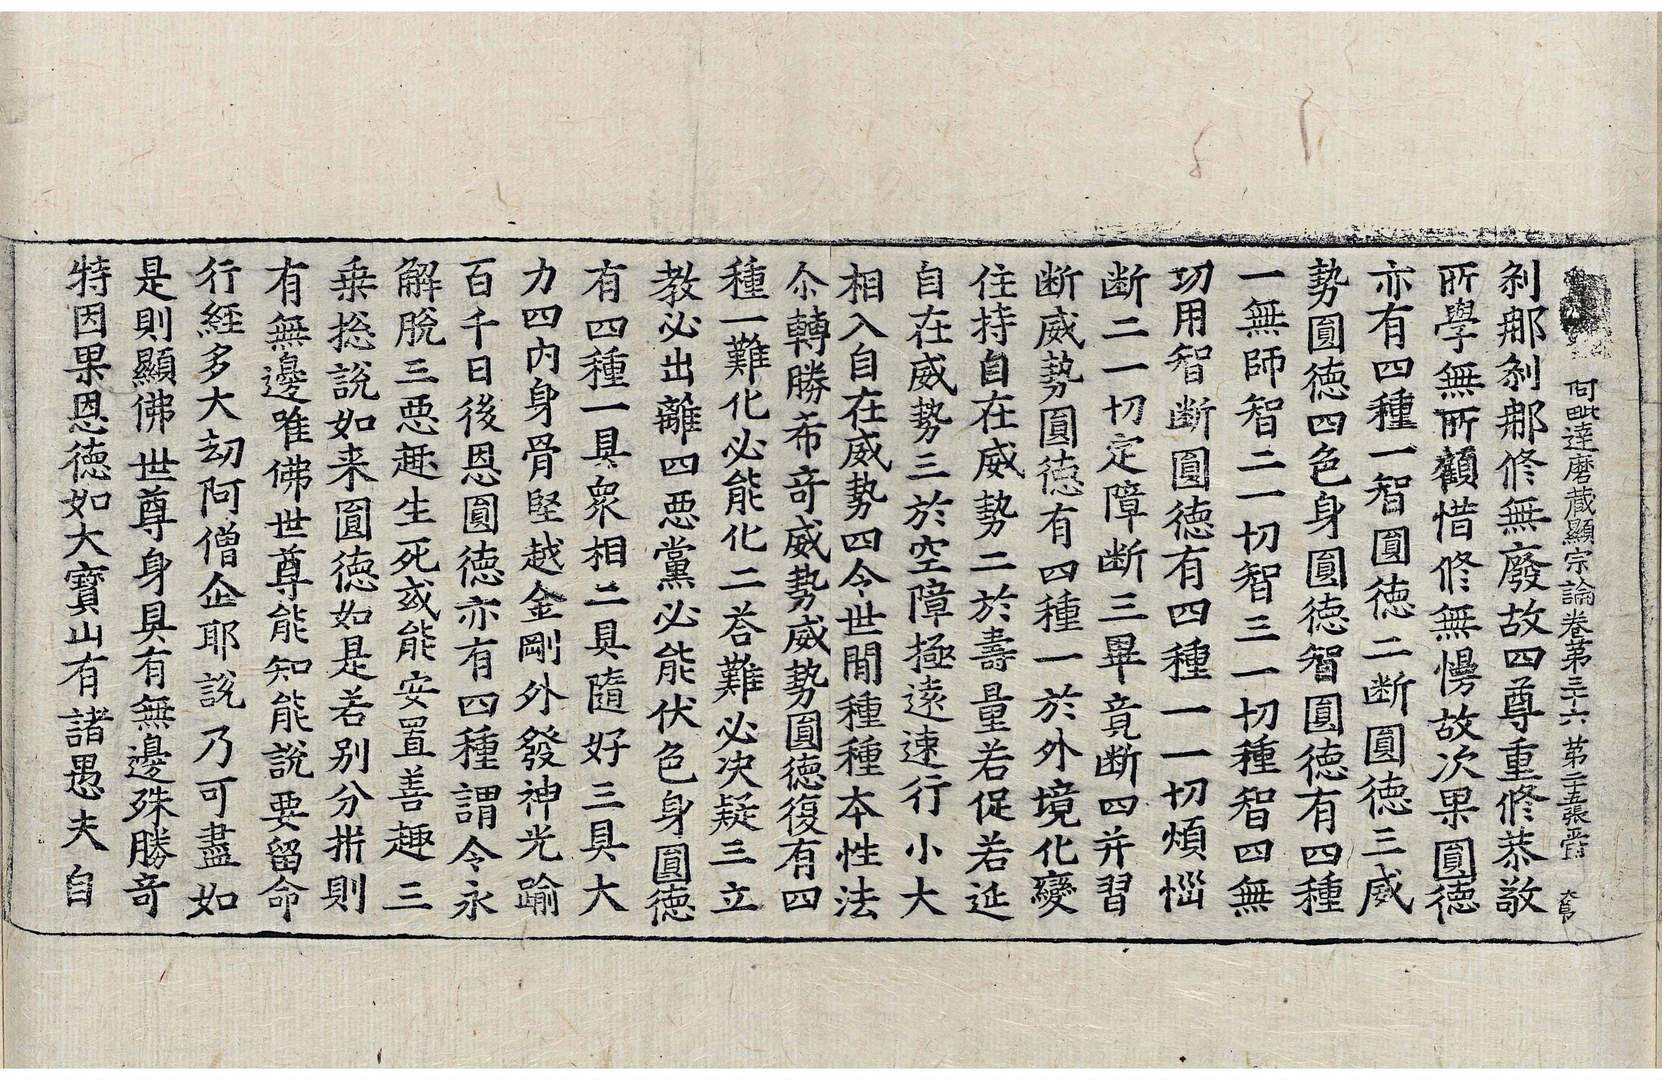 阿毗達磨藏顯宗論卷第三十六 第二十五張 爵 六
剎那剎那修無廢故四尊重修恭敬
所學無所顧惜修無慢故次果圓德
亦有四種一智圓德二断圓德三威
勢圓德四色身圓德智圓德有四種
一無師智二一切智三一切種智四無
功用智断圓德有四種一一切煩惱
断二一切定障断三畢竟断四并習
断威勢圓德有四種一於外境化變
住持自在威勢二於壽量若促若延
自在威勢三於空障極遠速行小大
相入自在威勢四令世間種種本性法
尒轉勝希奇威勢威勢圓德復有四
種一難化必能化二荅難必決疑三立
教必出離四惡黨必能伏色身圓德
有四種一具衆相二具隨好三具大
力四內身骨堅越金剛外發神光踰
百千日後恩圓德亦有四種謂令永
解脫三惡趣生死或能安置善趣三
乘捴說如来圓德如是若別分析則
有無邊唯佛世尊能知能說要留命
行經多大劫阿僧企耶說乃可盡如
是則顯佛世尊身具有無邊殊勝奇
特因果恩德如大寶山有諸愚夫自